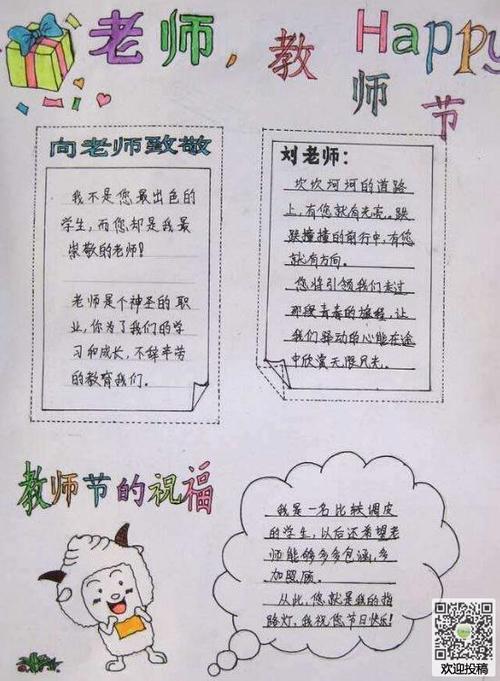 老师，教 Happy
师
节
向老师致敬
我不是您最出色的
学生，而您却是我最
崇敬的老师！
老师是个神圣的职
业，你为了我们的学
习和成长，不辞辛苦
的教育我们。
刘老师：
坎坎坷坷的道路
上，有您就有光亮。跌
跌撞撞的前行中，有您
就有方向。
您将引领我们走过
那段青春的旅程，让
我们驿动的心能在途
中欣赏无限风光。
教师节的祝福
我是一名比较调皮
的学生，以后还希望老
师能够多多包涵，多
加照顾。
从此，您就是我的指
路灯，我祝您节日快乐！
欢迎投稿